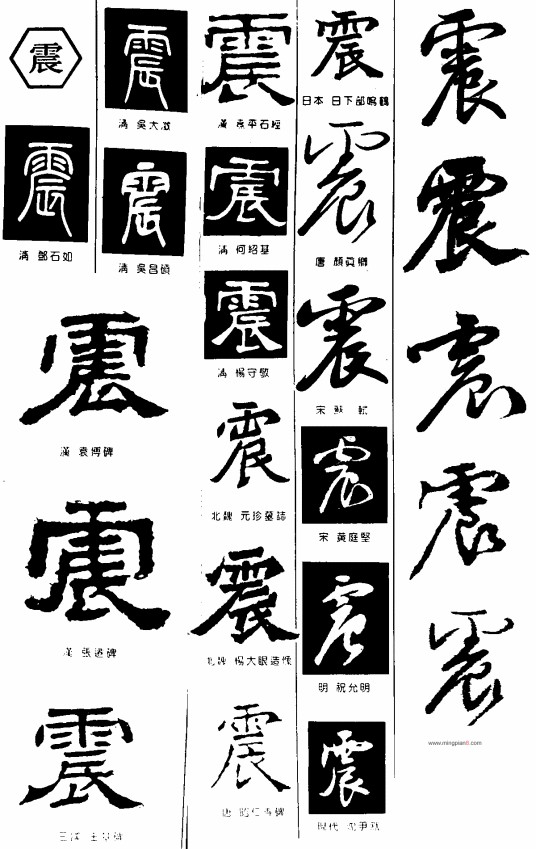 震
震
清 鄧石如
震
漢 袁博碑
震
漢 張遷碑
震
震
清 吳大澂
震
清 吳昌碩
震
漢 熹平石經
震
清 何紹基
震
清 楊守敬
震
北魏 元珍墓誌
震
北魏 楊大眼造像
震
唐 昭仁寺碑
震
日本 日下部鳴鶴
震
唐 顏真卿
震
宋 蘇 軾
震
宋 黃庭堅
震
明 祝允明
震
現代
震
震
震
震
震
www.mingpian8.com